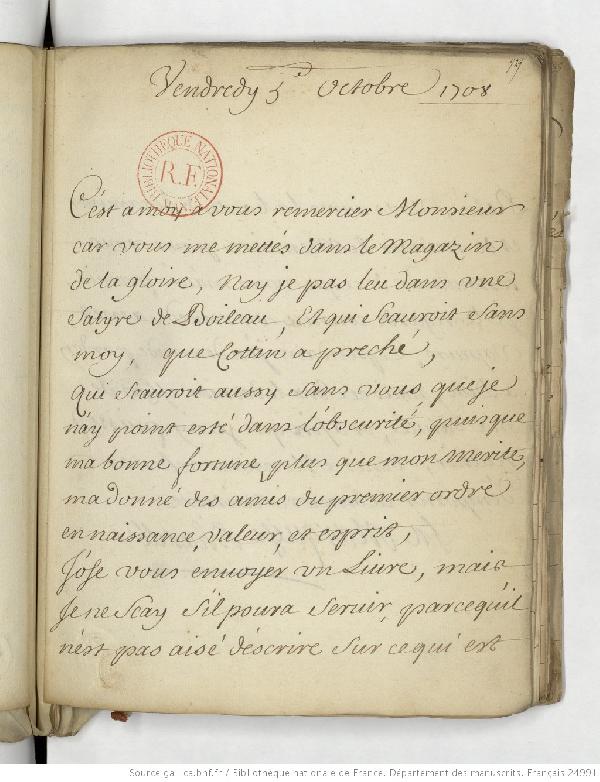 77
Vendredy 5 Octobre 1708
BIBLIOTHEQUE NATIONALE
R.F.
C'est a moy a vous remercier Monsieur
car vous me mettés dans le Magazin
de la gloire, Nay je pas leu dans vne
Satyre de Boileau, Et qui Scauroit Sans
moy, que Cottin a preché,
Qui Scauroit aussy Sans vous, que je
n'ay point esté dans l'obscurité, puisque
ma bonne fortune, plus que mon merite,
ma donné des amis du premier ordre
en naissance, valeur, et esprit,
J'ose vous envoyer vn Liure, mais
Je ne Scay Sil poura Seruir, parcequ'il
n'est pas aisé d'escrire Sur ce qui est
Source gallica.bnf.fr / Bibliothèque nationale de France. Département des manuscrits. Français 24991